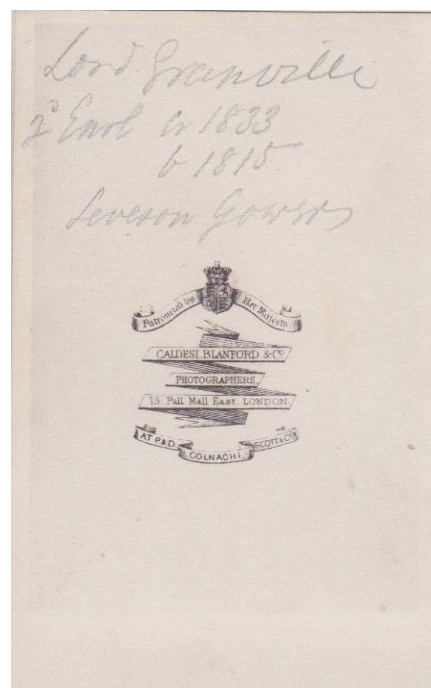 Lord Granville
2d Earl cr 1833
b 1815
Leveson Gowers
Patronized by Her Majesty
CALDESI BLANFORD & Co
PHOTOGRAPHERS,
13 Pall Mall East LONDON.
AT P & D. COLNAGHI, SCOTT & Co